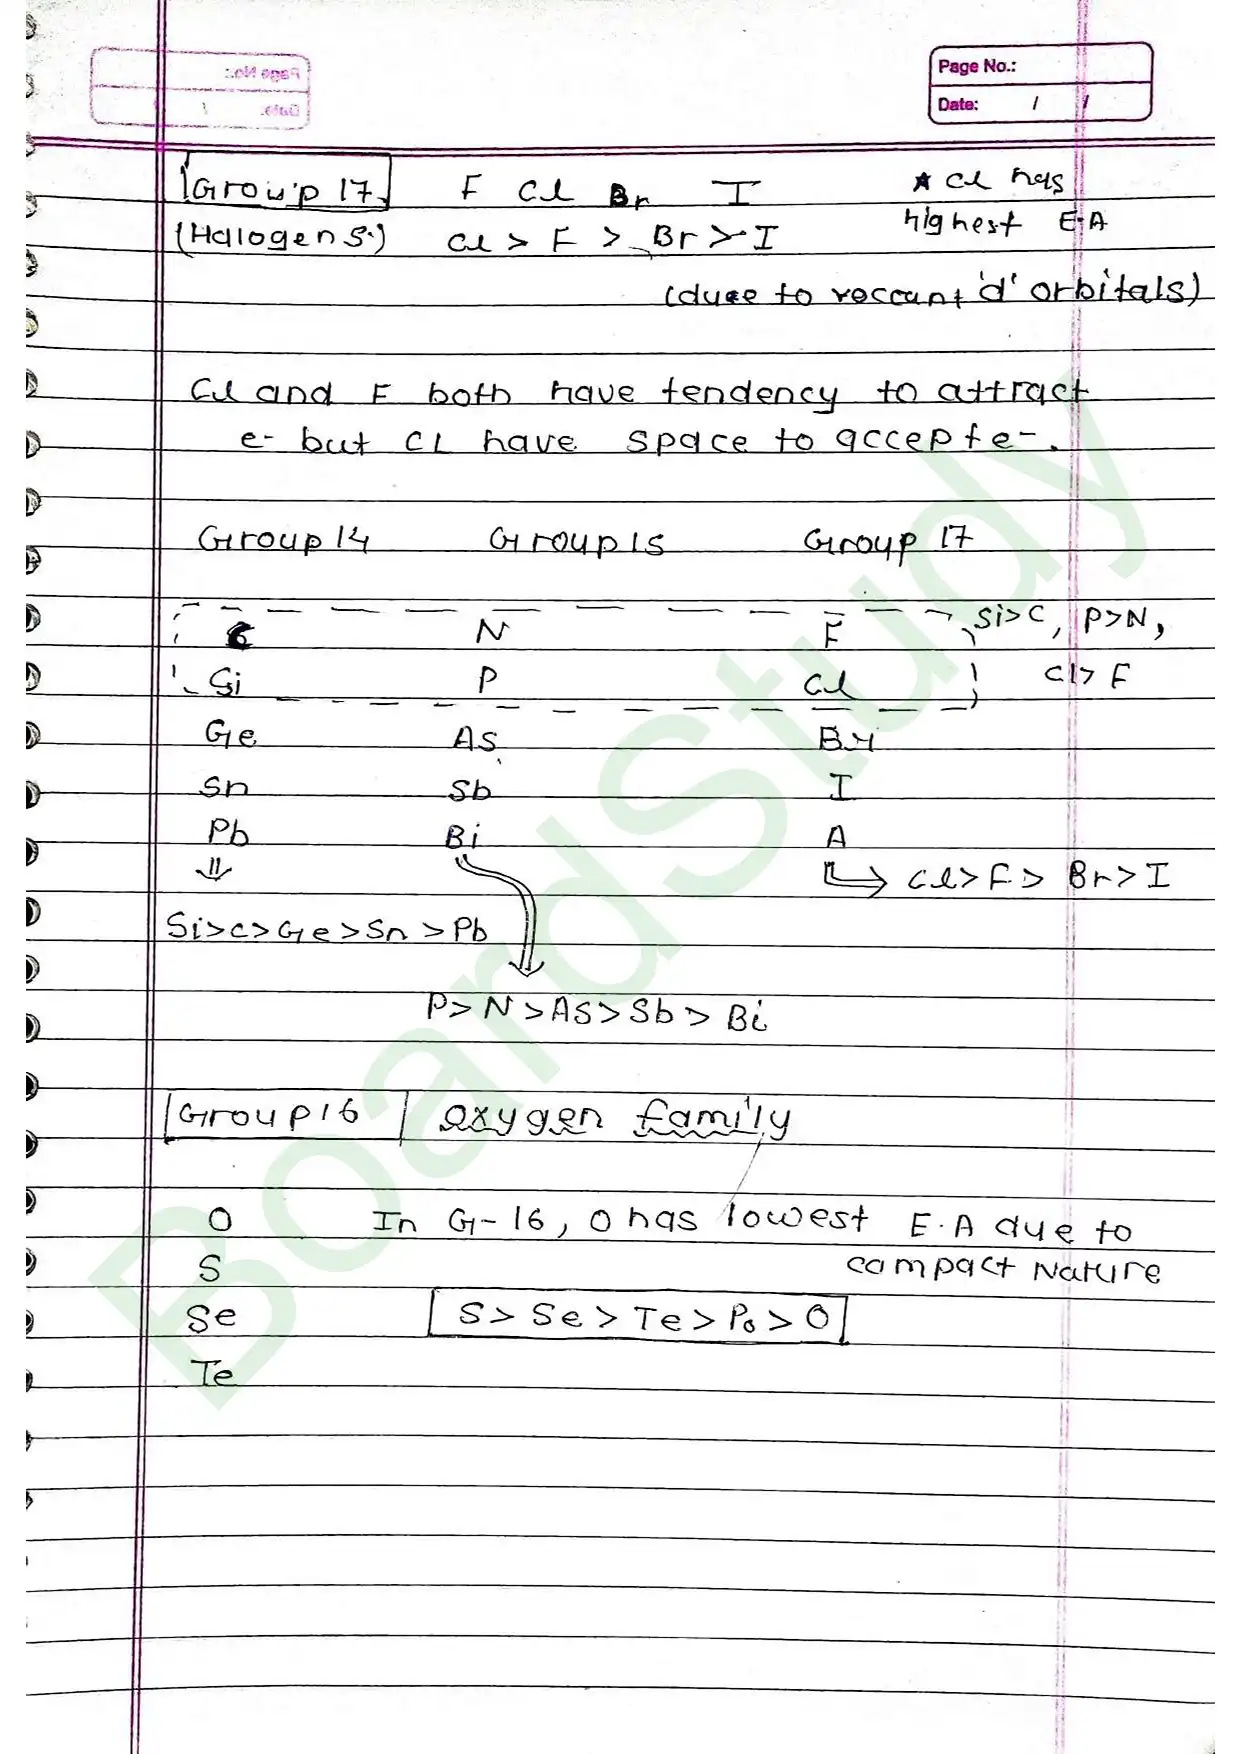 Page No.:
Date: / /
Group 17 F Cl Br I ★ Cl has
(Halogens) Cl > F > Br > I highest E.A
(duee to vaccant 'd' orbitals)
Cl and F both have tendency to attract
e- but CL have space to accept e-.
Group 14 Group 15 Group 17
C N F Si>C, P>N,
Si P Cl Cl> F
Ge As Br
Sn Sb I
Pb Bi A
⇓ Cl>F> Br>I
Si>C>Ge>Sn>Pb
P>N>As>Sb>Bi
Group 16 oxygen family
O In G-16, O has lowest E.A due to
S compact Nature
Se S> Se> Te> Po> O
Te
BoardStudy